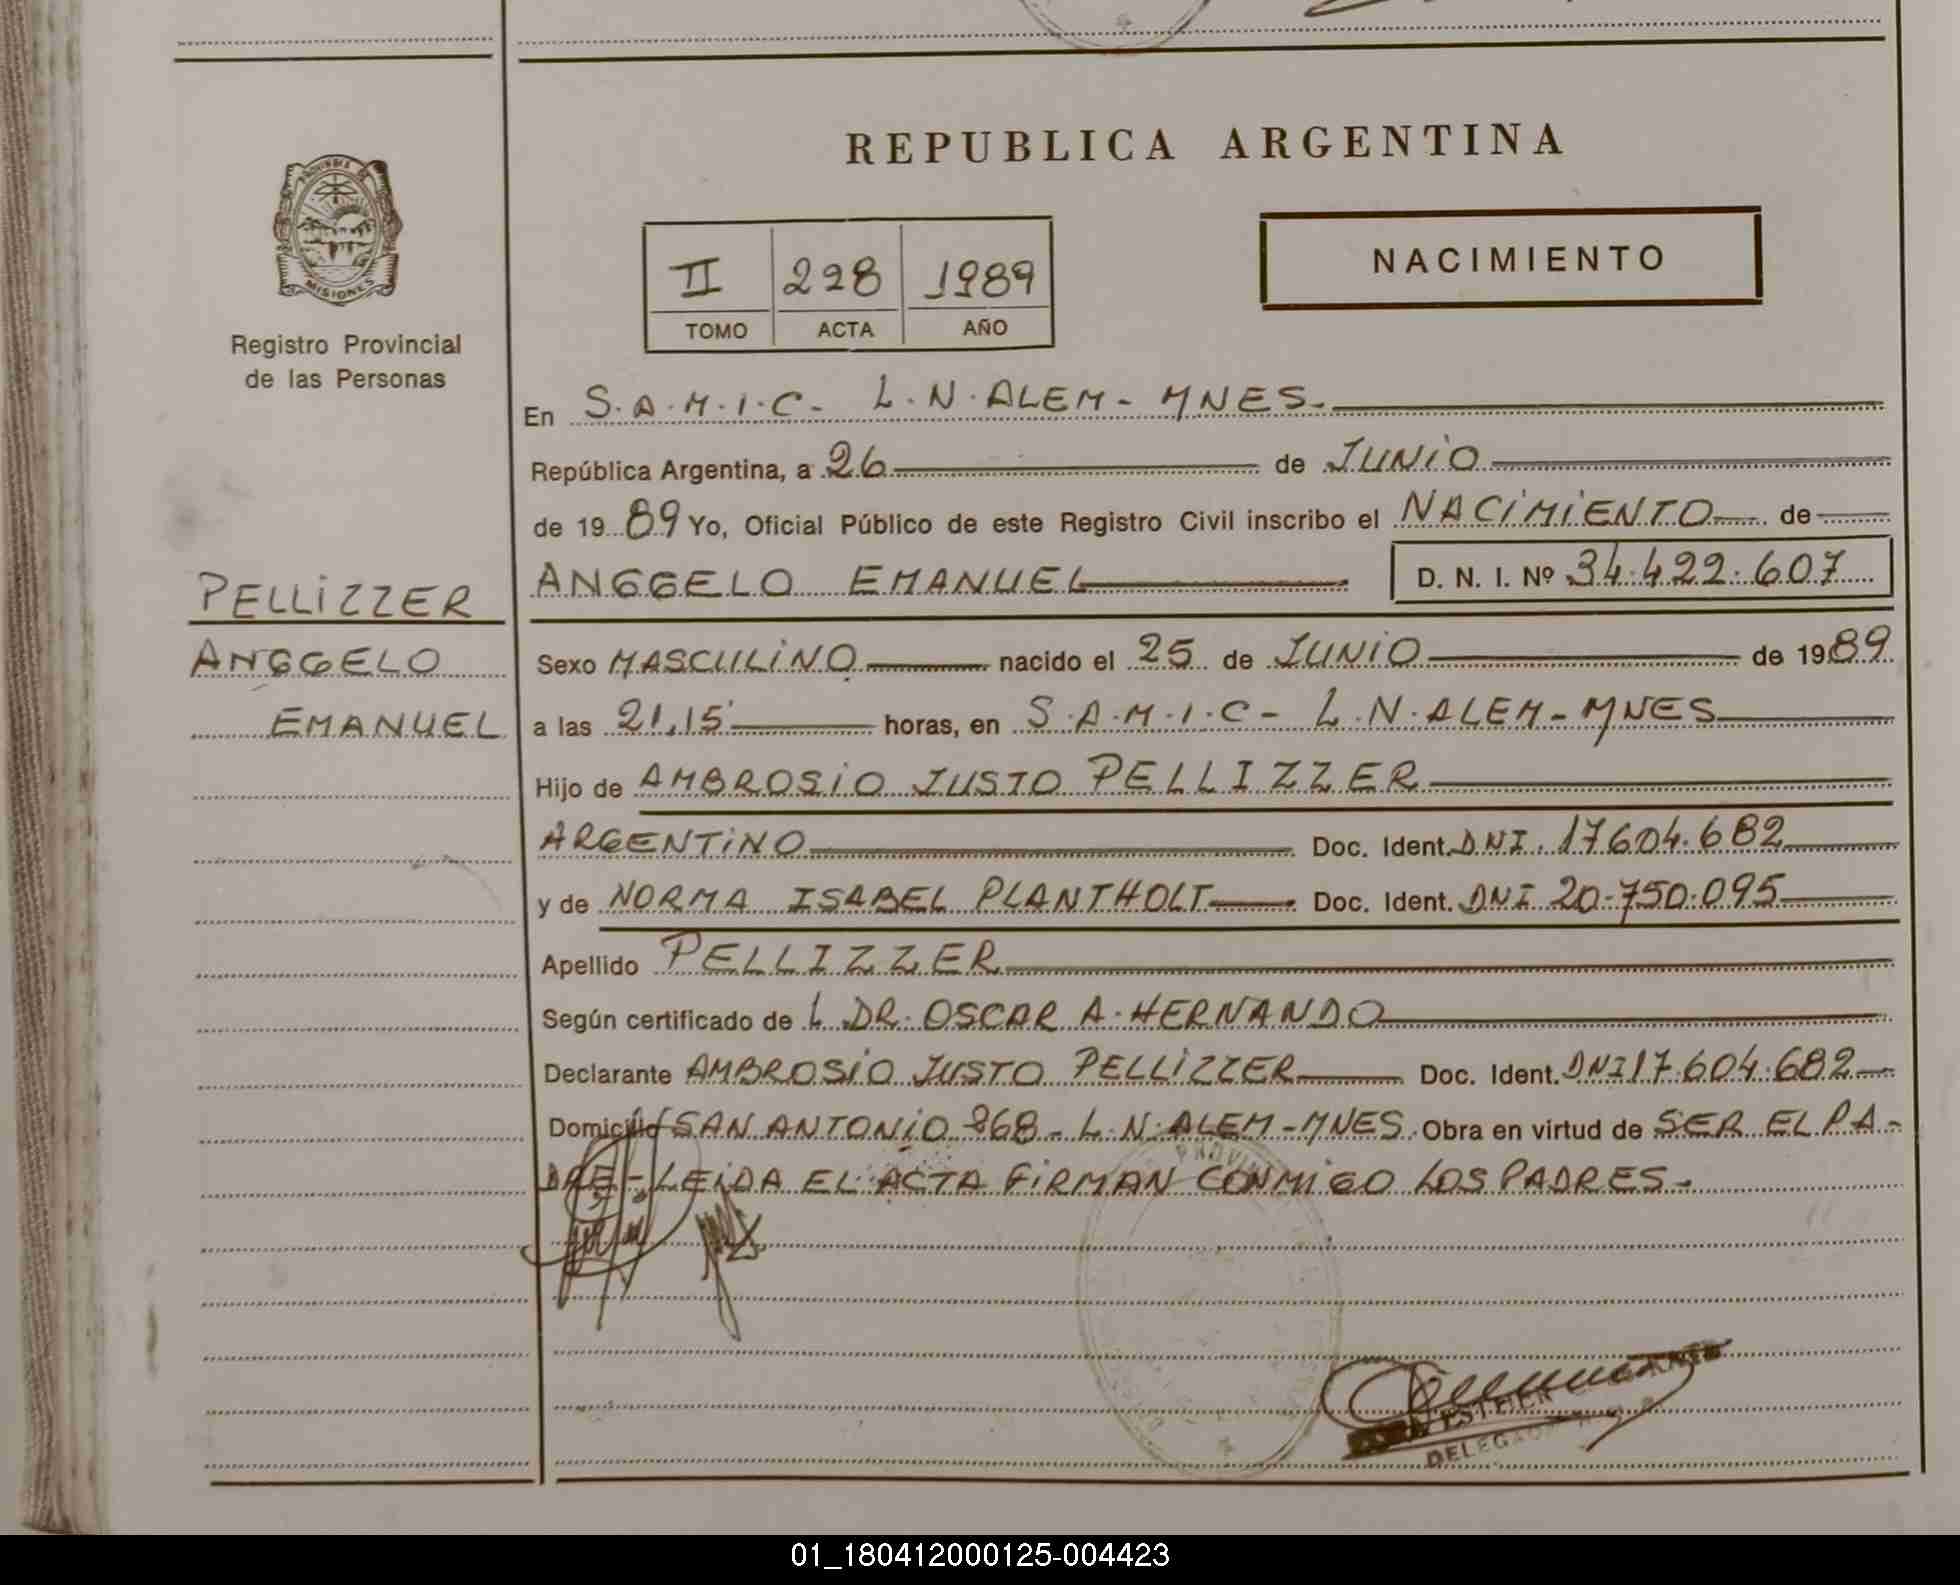 REPUBLICA ARGENTINA
PROVINCIA DE
MISIONES
Registro Provincial
de las Personas
NACIMIENTO
II 228 1989
TOMO ACTA AÑO
En S.A.M.I.C- L.N.ALEM- MNES.
República Argentina, a 26 de JUNIO
de 1989 Yo, Oficial Público de este Registro Civil inscribo el NACIMIENTO de
ANGGELO EMANUEL D. N. I. Nº 34.422.607
PELLIZZER
ANGGELO
EMANUEL
Sexo MASCULINO nacido el 25 de JUNIO de 1989
a las 21,15 horas, en S.A.M.I.C- L.N.ALEM-MNES
Hijo de AMBROSIO JUSTO PELLIZZER
ARGENTINO Doc. Ident. DNI. 17604.682
y de NORMA ISABEL PLANTHOLT Doc. Ident. DNI 20.750.095
Apellido PELLIZZER
Según certificado de L DR. OSCAR A. HERNANDO
Declarante AMBROSIO JUSTO PELLIZZER Doc. Ident. DNI 17.604.682
Domicilio SAN ANTONIO 868- L.N.ALEM-MNES. Obra en virtud de SER EL PA-
DRE- LEIDA EL ACTA FIRMAN CONMIGO LOS PADRES-
PROVIN
ESTHER
DELEGADO
01_180412000125-004423